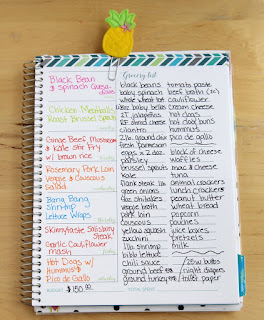 Grocery list
Black Bean
& Spinach Quesa-
dillas
Chicken Meatballs
Roast Brussel Sprouts
Ginger Beef, Mushroom
& Kale Stir Fry
w/ brown rice
Rosemary Pork Loin
Veggie & Couscous
Salad
Bang Bang
Shrimp
Lettuce Wraps
Skinnytaste Salisbury
Steak
Garlic Cauliflower
mash
Hot Dogs w/
Hummus &
Pico de Gallo
$150.00
black beans
baby spinach
whole wheat tort
baby bellas
2 jalapeños
shred cheese
cilantro
2 lb. ground chix
fresh parmesan
eggs x 2 doz.
parsley
brussel sprouts
kale
flank steak 1 lb
green onions
shiitakes
veggie broth
pork loin
couscous
yellow squash
zucchini
1 lb shrimp
bibb lettuce
chili sauce
ground beef
ground turkey
tomato paste
beef broth
cauliflower
cream cheese
hot dogs
hot dog buns
hummus
pico de gallo
block of cheese
waffles
mac & cheese
tuna
animal crackers
lunch crackers
peanut butter
wheat bread
popcorn
pouches
juice boxes
pretzels
milk
wipes
night diapers
toilet paper